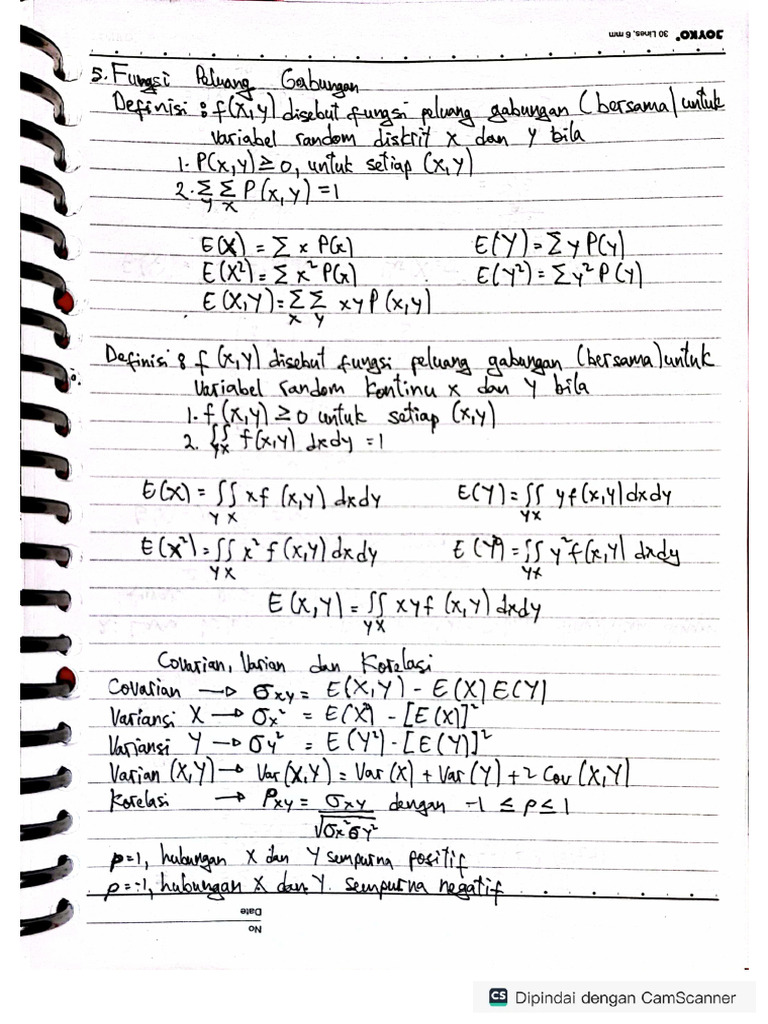 JOYKO® 30 Lines, 6 mm
5. Fungsi Peluang Gabungan
Definisi : f(x,y) disebut fungsi peluang gabungan (bersama) untuk
variabel random diskrit x dan y bila
1. P(x,y) ≥ 0, untuk setiap (x,y)
2. Σ Σ P(x,y) = 1
y x
E(X) = Σ x P(x) E(Y) = Σ y P(y)
E(X²) = Σ x² P(x) E(Y²) = Σ y² P(y)
E(X,Y) = Σ Σ xy P(x,y)
x y
Definisi : f(x,y) disebut fungsi peluang gabungan (bersama) untuk
variabel random kontinu x dan y bila
1. f(x,y) ≥ 0 untuk setiap (x,y)
2. ∫∫ f(x,y) dxdy = 1
yx
E(X) = ∫∫ xf (x,y) dxdy E(Y) = ∫∫ yf(x,y) dxdy
y x yx
E(X²) = ∫∫ x² f(x,y) dxdy E(Y²) = ∫∫ y² f(x,y) dxdy
y x yx
E(X,Y) = ∫∫ xyf (x,y) dxdy
yx
Covarian, Varian dan Korelasi
Covarian → σxy = E(X,Y) - E(X) E(Y)
Variansi X → σx² = E(X²) - [E(X)]²
Variansi Y → σy² = E(Y²) - [E(Y)]²
Varian (X,Y) → Var(X,Y) = Var(X) + Var(Y) + 2 Cov(X,Y)
Korelasi → ρxy = σxy / √σx²σy² dengan -1 ≤ ρ ≤ 1
ρ=1, hubungan X dan Y sempurna positif
ρ=-1, hubungan X dan Y. sempurna negatif
No
Date
CS Dipindai dengan CamScanner